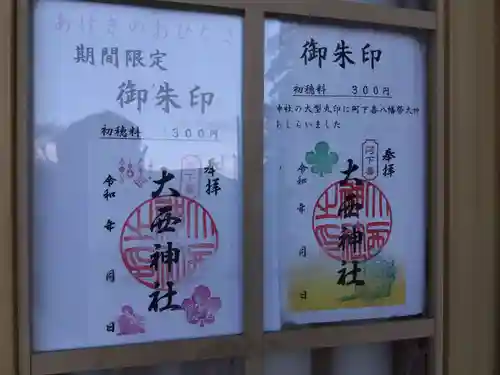 あげきのおひなさん
期間限定
御朱印
初穂料 300円
奉拝
大西神社
令和 年 月 日
御朱印
初穂料 300円
神社の大型丸印に阿下喜八幡祭大神
あしらいました
奉拝
阿下喜
大西神社
令和 年 月 日